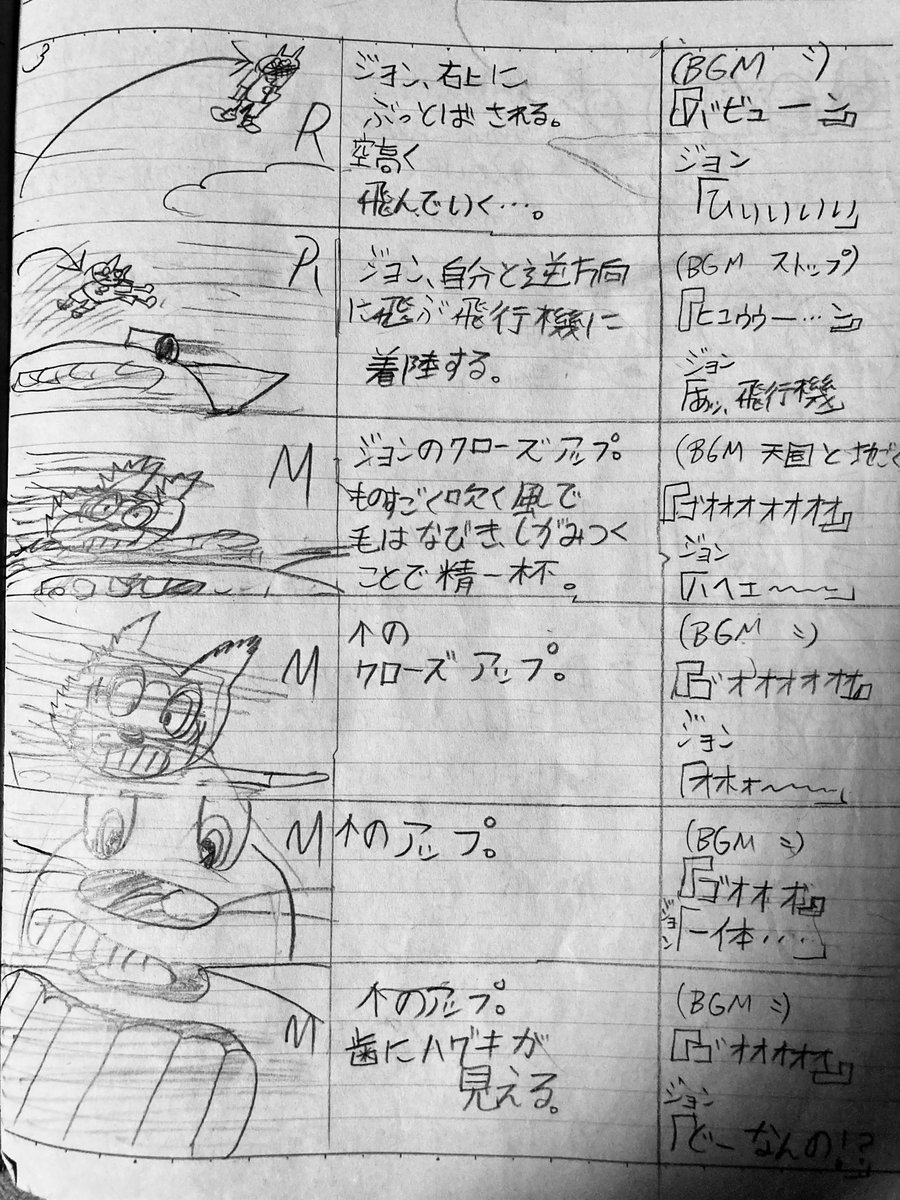 3
R
ジョン、右上に
ぶっとばされる。
空高く
飛んでいく…。
(BGM 〃)
『バビューン』
ジョン
「ひいいいい」
R
ジョン、自分と逆方向
に飛ぶ飛行機に
着陸する。
(BGM ストップ)
『ヒュウウー…ン』
ジョン
「あッ、飛行機」
M
ジョンのクローズアップ。
ものすごく吹く風で
毛はなびき、しがみつく
ことで精一杯。
(BGM 天国と地ごく
『ゴオオオオオオオ』
ジョン
「ハヘエ〜〜〜」
M
↑の
クローズアップ。
(BGM 〃)
『ゴオオオオオオ』
ジョン
「オホォ〜〜〜」
M
↑のアップ。
(BGM 〃)
『ゴオオオ』
ジョン
「一体‥‥」
M
↑のアップ。
歯にハグキが
見える。
(BGM 〃)
『ゴオオオオオ』
ジョン
「どーなんの!?」